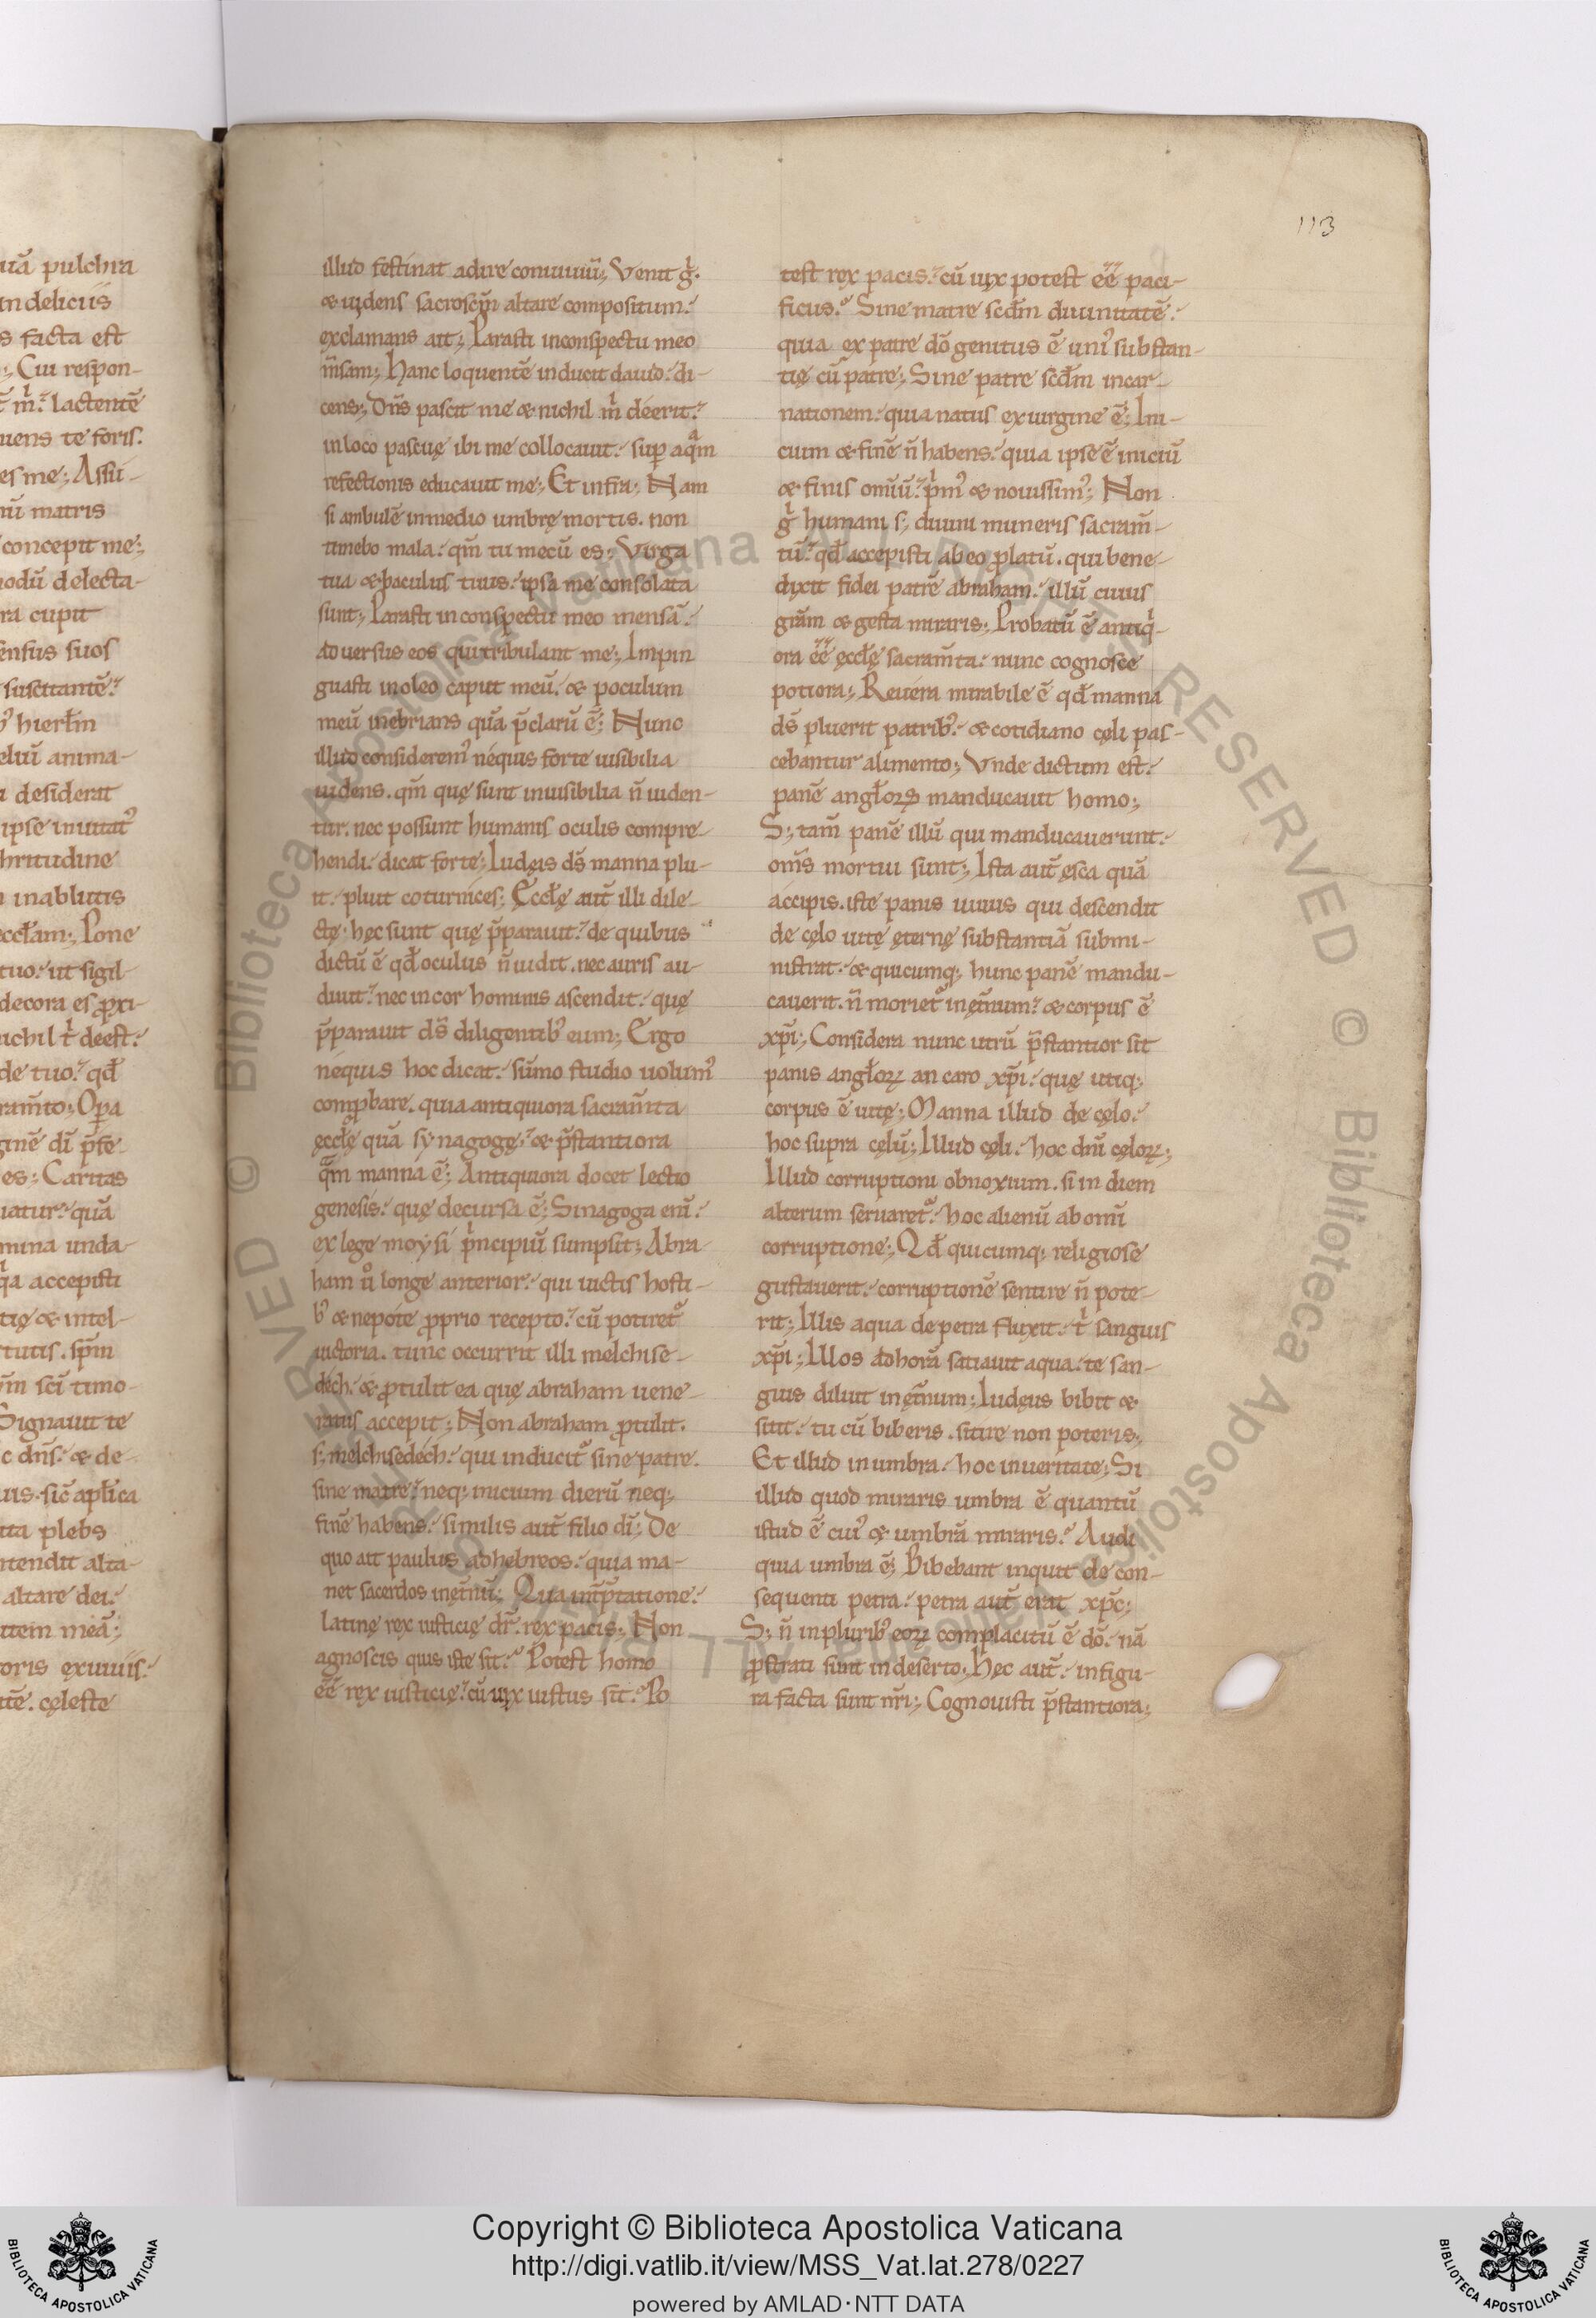 113
uā pulchra
in deliciis
s facta est
Cui respon-
lactentē
uens te foris.
es me; Assu-
nū matris
concepit me;
odū delecta-
ra cupit
ensus suos
suscitantē.
hierłm
eluī anima-
desiderat
ipse inuitat᷒
hritudine
inablutis
eccłam; Pone
tuo. ut sigil-
decora es ꝓxi-
ichil t̍ deest.
de tuo. qđ
ram̄to; Oꝑa
ginē dī p̄fe-
es; Caritas
iatur. quā
mina unda-
q̍a accepisti
tię & intel-
tutis. sp̄m
scī timo-
Signauit te
c dn̄s. & de-
uis. sic̄ apłica
ta plebs
ntendit alta-
altare dei.
utem meā;
oris exuuiis.
tē. cęleste
illud festinat adire conuiuiū; Venit g̍.
& uidens sacrosc̄m altare compositum.
exclamans ait; Parasti inconspectu meo
m̄sam; Hanc loquentē inducit dauid. di-
cens; Dn̄s pascit me & nichil m̍ deerit.
in loco pascuę ibi me collocauit. suꝑ aqᵃm
refectionis educauit me; Et infra; Nam
si ambulē inmedio umbrę mortis. non
timebo mala. qm̄ tu mecū es; Virga
tua & baculus tuus. ipsa me consolata
sunt; Parasti in conspectu meo mensā.
aduersus eos qui tribulant me; Impin
guasti in oleo caput meū. & poculum
meū inebrians quā p̄clarū ē; Nunc
illud considerem᷒ nequis forte uisibilia
uidens. qm̄ quę sunt inuisibilia n̄ uiden-
tur. nec possunt humanis oculis compre-
hendi. dicat forte; Iudęis ds̄ manna plu-
it. pluit coturnices; Ęccłę aut̄ illi dile-
ctę. hęc sunt quę p̄parauit. de quibus
dictū ē qđ oculus n̄ uidit. nec auris au-
diuit. nec in cor hominis ascendit. quę
p̄parauit ds̄ diligentib᷒ eum; Ergo
nequis hoc dicat. sūmo studio uolum᷒
comꝓbare. quia antiquiora sacram̄ta
ęccłę quā synagogę. & p̄stantiora
qᵃm manna ē; Antiquiora docet lectio
genesis. quę decursa ē; Sinagoga enī.
ex lege moysi p̍ncipiū sumpsit; Abra
ham ů longe anterior. qui uictis hosti-
b᷒ & nepote ꝓprio recepto. cū potiret᷒
uictoria. tunc occurrit illi melchise-
dech. & ꝓtulit ea quę abraham uene-
ratus accepit; Non abraham ꝓtulit.
s; melchisedech. qui inducit᷒ sine patre.
sine matre. neq; inicium dierū neq;
finē habens. similis aut̄ filio dī; De
quo ait paulus adhebreos. quia ma-
net sacerdos inęt̄nū; Qua int̄p̄tatione.
latinę rex iusticię dr̄. rex pacis; Non
agnoscis quis iste sit. Potest homo
eē̄ rex iusticię. cū uix iustus sit. Po
test rex pacis. cū uix potest eē̄ paci-
ficus. Sine matre scđm diuinitatē.
quia ex patre dō genitus ē uni᷒ substan-
tię cū patre; Sine patre scđm incar-
nationem. quia natus ex uirgine ē; Ini-
cium & finē n̄ habens. quia ipse ē iniciū
& finis omīū. p̍m᷒ & nouissim᷒; Non
g̍ humani s; diuini muneris sacram̄-
tū. qđ accepisti ab eo ꝓlatū. qui bene-
dixit fidei patrē abraham. illū cuius
gr̄am & gesta miraris; Probatū ē antiq̍-
ora eē̄ ęccłę sacram̄ta. nunc cognosce
potiora; Reuera mirabile ē qđ manna
ds̄ pluerit patrib᷒. & cotidiano cęli pas-
cebantur alimento; Vnde dictum est.
panē angłoꝝ manducauit homo;
S; tam̄ panē illū qui manducauerunt.
om̄s mortui sunt; Ista aut̄ ęsca quā
accipis. iste panis uiuus qui descendit
de cęlo uitę ęternę substantiā submi-
nistrat. & quicumq; hunc panē mandu-
cauerit. n̄ moriet᷒ inęt̄num. & corpus ē
xp̄i; Considera nunc utrū p̄stantior sit
panis angłoꝝ an caro xp̄i. quę utiq;
corpus ē uitę; Manna illud de cęlo.
hoc supra cęlū; Illud cęli. hoc dnī cęloꝝ;
Illud corruptioni obnoxium. si in diem
alterum seruaret᷒. hoc alienū ab omī
corruptione; Qđ quicumq; religiose
gustauerit. corruptionē sentire n̄ pote-
rit; Illis aqua de petra fluxit. t̍ sanguis
xp̄i; Illos adhorā satiauit aqua. te san-
guis diluit inęt̄num; Iudęus bibit &
sitit. tu cū biberis. sitire non poteris;
Et illud in umbra. hoc in ueritate; Si
illud quod miraris umbra ē quantū
istud ē cui᷒ & umbrā miraris. Audi
quia umbra ē; Bibebant inquit de con-
sequenti petra. petra aut̄ erat xp̄c;
S; n̄ in plurib᷒ eoꝝ complacitū ē dō. nā
ꝓstrati sunt in deserto; Hęc aut̄. in figu-
ra facta sunt nr̄i; Cognouisti p̄stantiora;
© Biblioteca Apostolica Vaticana ALL RIGHTS RESERVED © Biblioteca Apostolica Vaticana ALL RIGHTS RESERVED
BIBLIOTECA APOSTOLICA VATICANA
Copyright © Biblioteca Apostolica Vaticana
http://digi.vatlib.it/view/MSS_Vat.lat.278/0227
powered by AMLAD·NTT DATA
BIBLIOTECA APOSTOLICA VATICANA